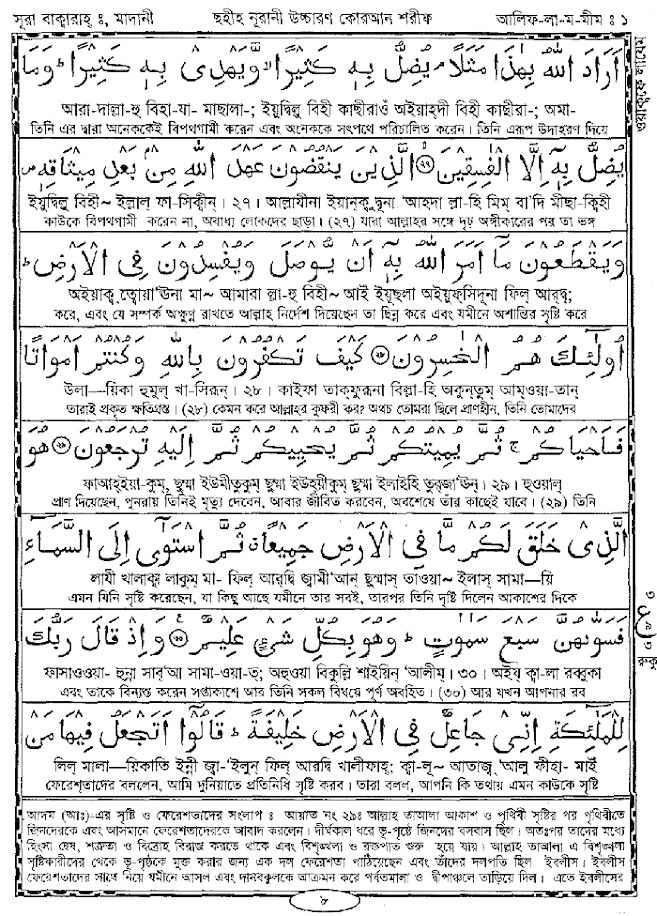 সূরা বাক্বারাহ্ ঃ, মাদানী ছহীহ নূরানী উচ্চারণ কোরআন শরীফ আলিফ-লা-ম-মীম ঃ ১
اَرَادَ اللّٰهُ بِهٰذَا مَثَلًا ۘ يُضِلُّ بِهٖ كَثِيْرًا ۙ وَّيَهْدِىْ بِهٖ كَثِيْرًا ؕ وَمَا
আরা-দাল্লা-হু বিহা-যা- মাছালা-; ইয়ুদ্বিল্লু বিহী কাছীরাওঁ অইয়াহ্দী বিহী কাছীরা-; অমা-
তিনি এর দ্বারা অনেককেই বিপথগামী করেন এবং অনেককে সৎপথে পরিচালিত করেন। তিনি এরূপ উদাহরণ দিয়ে
يُضِلُّ بِهٖٓ اِلَّا الْفٰسِقِيْنَ ۙ﴿۲۶﴾ الَّذِيْنَ يَنْقُضُوْنَ عَهْدَ اللّٰهِ مِنْۢ بَعْدِ مِيْثَاقِهٖ ص
ইয়ুদ্বিল্লু বিহী~ ইল্লাল্ ফা-সিক্বীন্। ২৭। আল্লাযীনা ইয়ান্‌ক্বু দ্বূনা 'আহ্দা ল্লা-হি মিম্ বা'দি মীছা-ক্বিহী
কাউকে বিপথগামী করেন না, অবাধ্য লোকদের ছাড়া। (২৭) যারা আল্লাহর সঙ্গে দৃঢ় অঙ্গীকারের পর তা ভঙ্গ
وَيَقْطَعُوْنَ مَآ اَمَرَ اللّٰهُ بِهٖٓ اَنْ يُّوْصَلَ وَيُفْسِدُوْنَ فِى الْاَرْضِ ؕ
অইয়াক্ব্ ত্বোয়া'ঊনা মা~ আমারা ল্লা-হু বিহী~ আই ইয়ূছলা অইয়ুফ্‌সিদূনা ফিল্ আর্দ্ব্;
করে, এবং যে সম্পর্ক অক্ষুন্ন রাখতে আল্লাহ নির্দেশ দিয়েছেন তা ছিন্ন করে এবং যমীনে অশান্তির সৃষ্টি করে
اُولٰٓئِكَ هُمُ الْخٰسِرُوْنَ ﴿۲۷﴾ كَيْفَ تَكْفُرُوْنَ بِاللّٰهِ وَكُنْتُمْ اَمْوَاتًا
উলা—য়িকা হুমুল্ খা-সিরূন্। ২৮। কাইফা তাক্‌ফুরূনা বিল্লা-হি অকুন্‌তুম্ আম্ওয়া-তান্
তারাই প্রকৃত ক্ষতিগ্রস্ত। (২৮) কেমন করে আল্লাহর কুফরী কর? অথচ তোমরা ছিলে প্রাণহীন, তিনি তোমাদের
فَاَحْيَاكُمْ ۚ ثُمَّ يُمِيْتُكُمْ ثُمَّ يُحْيِيْكُمْ ثُمَّ اِلَيْهِ تُرْجَعُوْنَ ﴿۲۸﴾ هُوَ
ফাআহ্ইয়া-কুম্, ছুম্মা ইউমীতুকুম্ ছুম্মা ইউহ্‌য়ীকুম্ ছুম্মা ইলাইহি তুর্‌জ্বা'ঊন্। ২৯। হুওয়াল্
প্রাণ দিয়েছেন, পুনরায় তিনিই মৃত্যু দেবেন, আবার জীবিত করবেন, অবশেষে তাঁর কাছেই যাবে। (২৯) তিনি
الَّذِىْ خَلَقَ لَكُمْ مَّا فِى الْاَرْضِ جَمِيْعًا ۗ ثُمَّ اسْتَوٰٓى اِلَى السَّمَآءِ
লাযী খালাক্ব লাকুম্ মা- ফিল্ আর্‌দ্বি জ্বামী'আন্ ছুম্মাস্ তাওয়া~ ইলাস্ সামা—য়ি
এমন যিনি সৃষ্টি করেছেন, যা কিছু আছে যমীনে তার সবই, তারপর তিনি দৃষ্টি দিলেন আকাশের দিকে
فَسَوّٰىهُنَّ سَبْعَ سَمٰوٰتٍ ؕ وَهُوَ بِكُلِّ شَىْءٍ عَلِيْمٌ ﴿۲۹﴾ وَاِذْ قَالَ رَبُّكَ
ফাসাওওয়া- হুন্না সাব্'আ সামা-ওয়া-ত্; অহুওয়া বিকুল্লি শাইয়িন্ 'আলীম্। ৩০। অইয্ ক্বা-লা রব্বুকা
এবং তাকে বিন্যস্ত করেন সপ্তাকাশে আর তিনি সকল বিষয়ে পূর্ণ অবহিত। (৩০) আর যখন আপনার রব
لِلْمَلٰٓئِكَةِ اِنِّىْ جَاعِلٌ فِى الْاَرْضِ خَلِيْفَةً ؕ قَالُوْٓا اَتَجْعَلُ فِيْهَا مَنْ
লিল্ মালা—য়িকাতি ইন্নী জ্বা-'ইলুন্ ফিল্ আরদ্বি খালীফাহ্; ক্বা-লূ~ আতাজ্ব্ 'আলু ফীহা- মাইঁ
ফেরেশ্‌তাদের বললেন, আমি দুনিয়াতে প্রতিনিধি সৃষ্টি করব। তারা বলল, আপনি কি তথায় এমন কাউকে সৃষ্টি
আদম (আঃ)-এর সৃষ্টি ও ফেরেশতাদের সংলাপ ঃ আয়াত নং ২৯ঃ আল্লাহ তাআলা আকাশ ও পৃথিবী সৃষ্টির পর পৃথিবীতে
জিনদেরকে এবং আসমানে ফেরেশতাদেরতে আবাদ করলেন। দীর্ঘকাল ধরে ভূ-পৃষ্ঠে জিনদের বসবাস ছিল। অতঃপর তাদের মধ্যে
হিংসা দ্বেষ, শত্রুতা ও বিদ্রোহ বিরাজ করতে থাকে এবং বিশৃংখলা ও রক্তপাত শুরু হয়ে যায়। আল্লাহ তাআলা এ বিশৃংখলা
সৃষ্টিকারীদের থেকে ভূ-পৃষ্ঠকে মুক্ত করার জন্য এক দল ফেরেশতা পাঠিয়েছেন এবং তাঁদের দলপতি ছিল ইবলীস। ইবলীস
ফেরেশ্‌তাদের সাথে নিয়ে যমীনে আসল এবং দানবকুলকে আক্রমন করে পর্বতমালা ও দ্বীপাঞ্চলে তাড়িয়ে দিল। এতে ইবলীসের
৮
ওয়াক্বফে লাযেম
৩
ع
৯
৩
রুকু